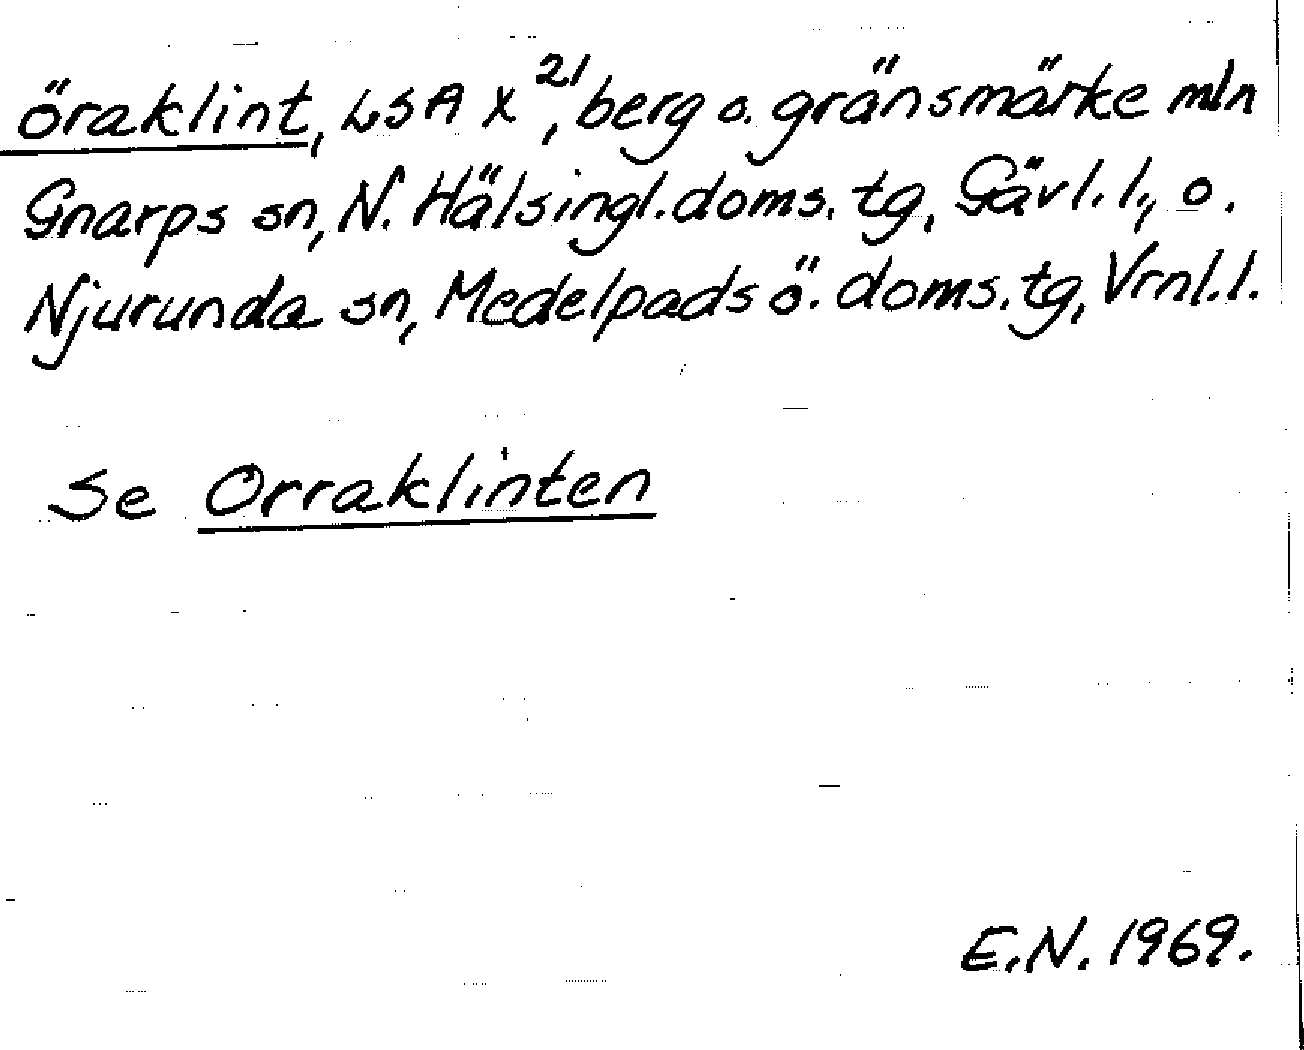 öraklint, LSA X²¹, berg o. gränsmärke mln
Gnarps sn, N. Hälsingl. doms. tg, Gävl. l., o.
Njurunda sn, Medelpads ö. doms. tg, Vrnl. l.
Se Orraklinten
E.N. 1969.